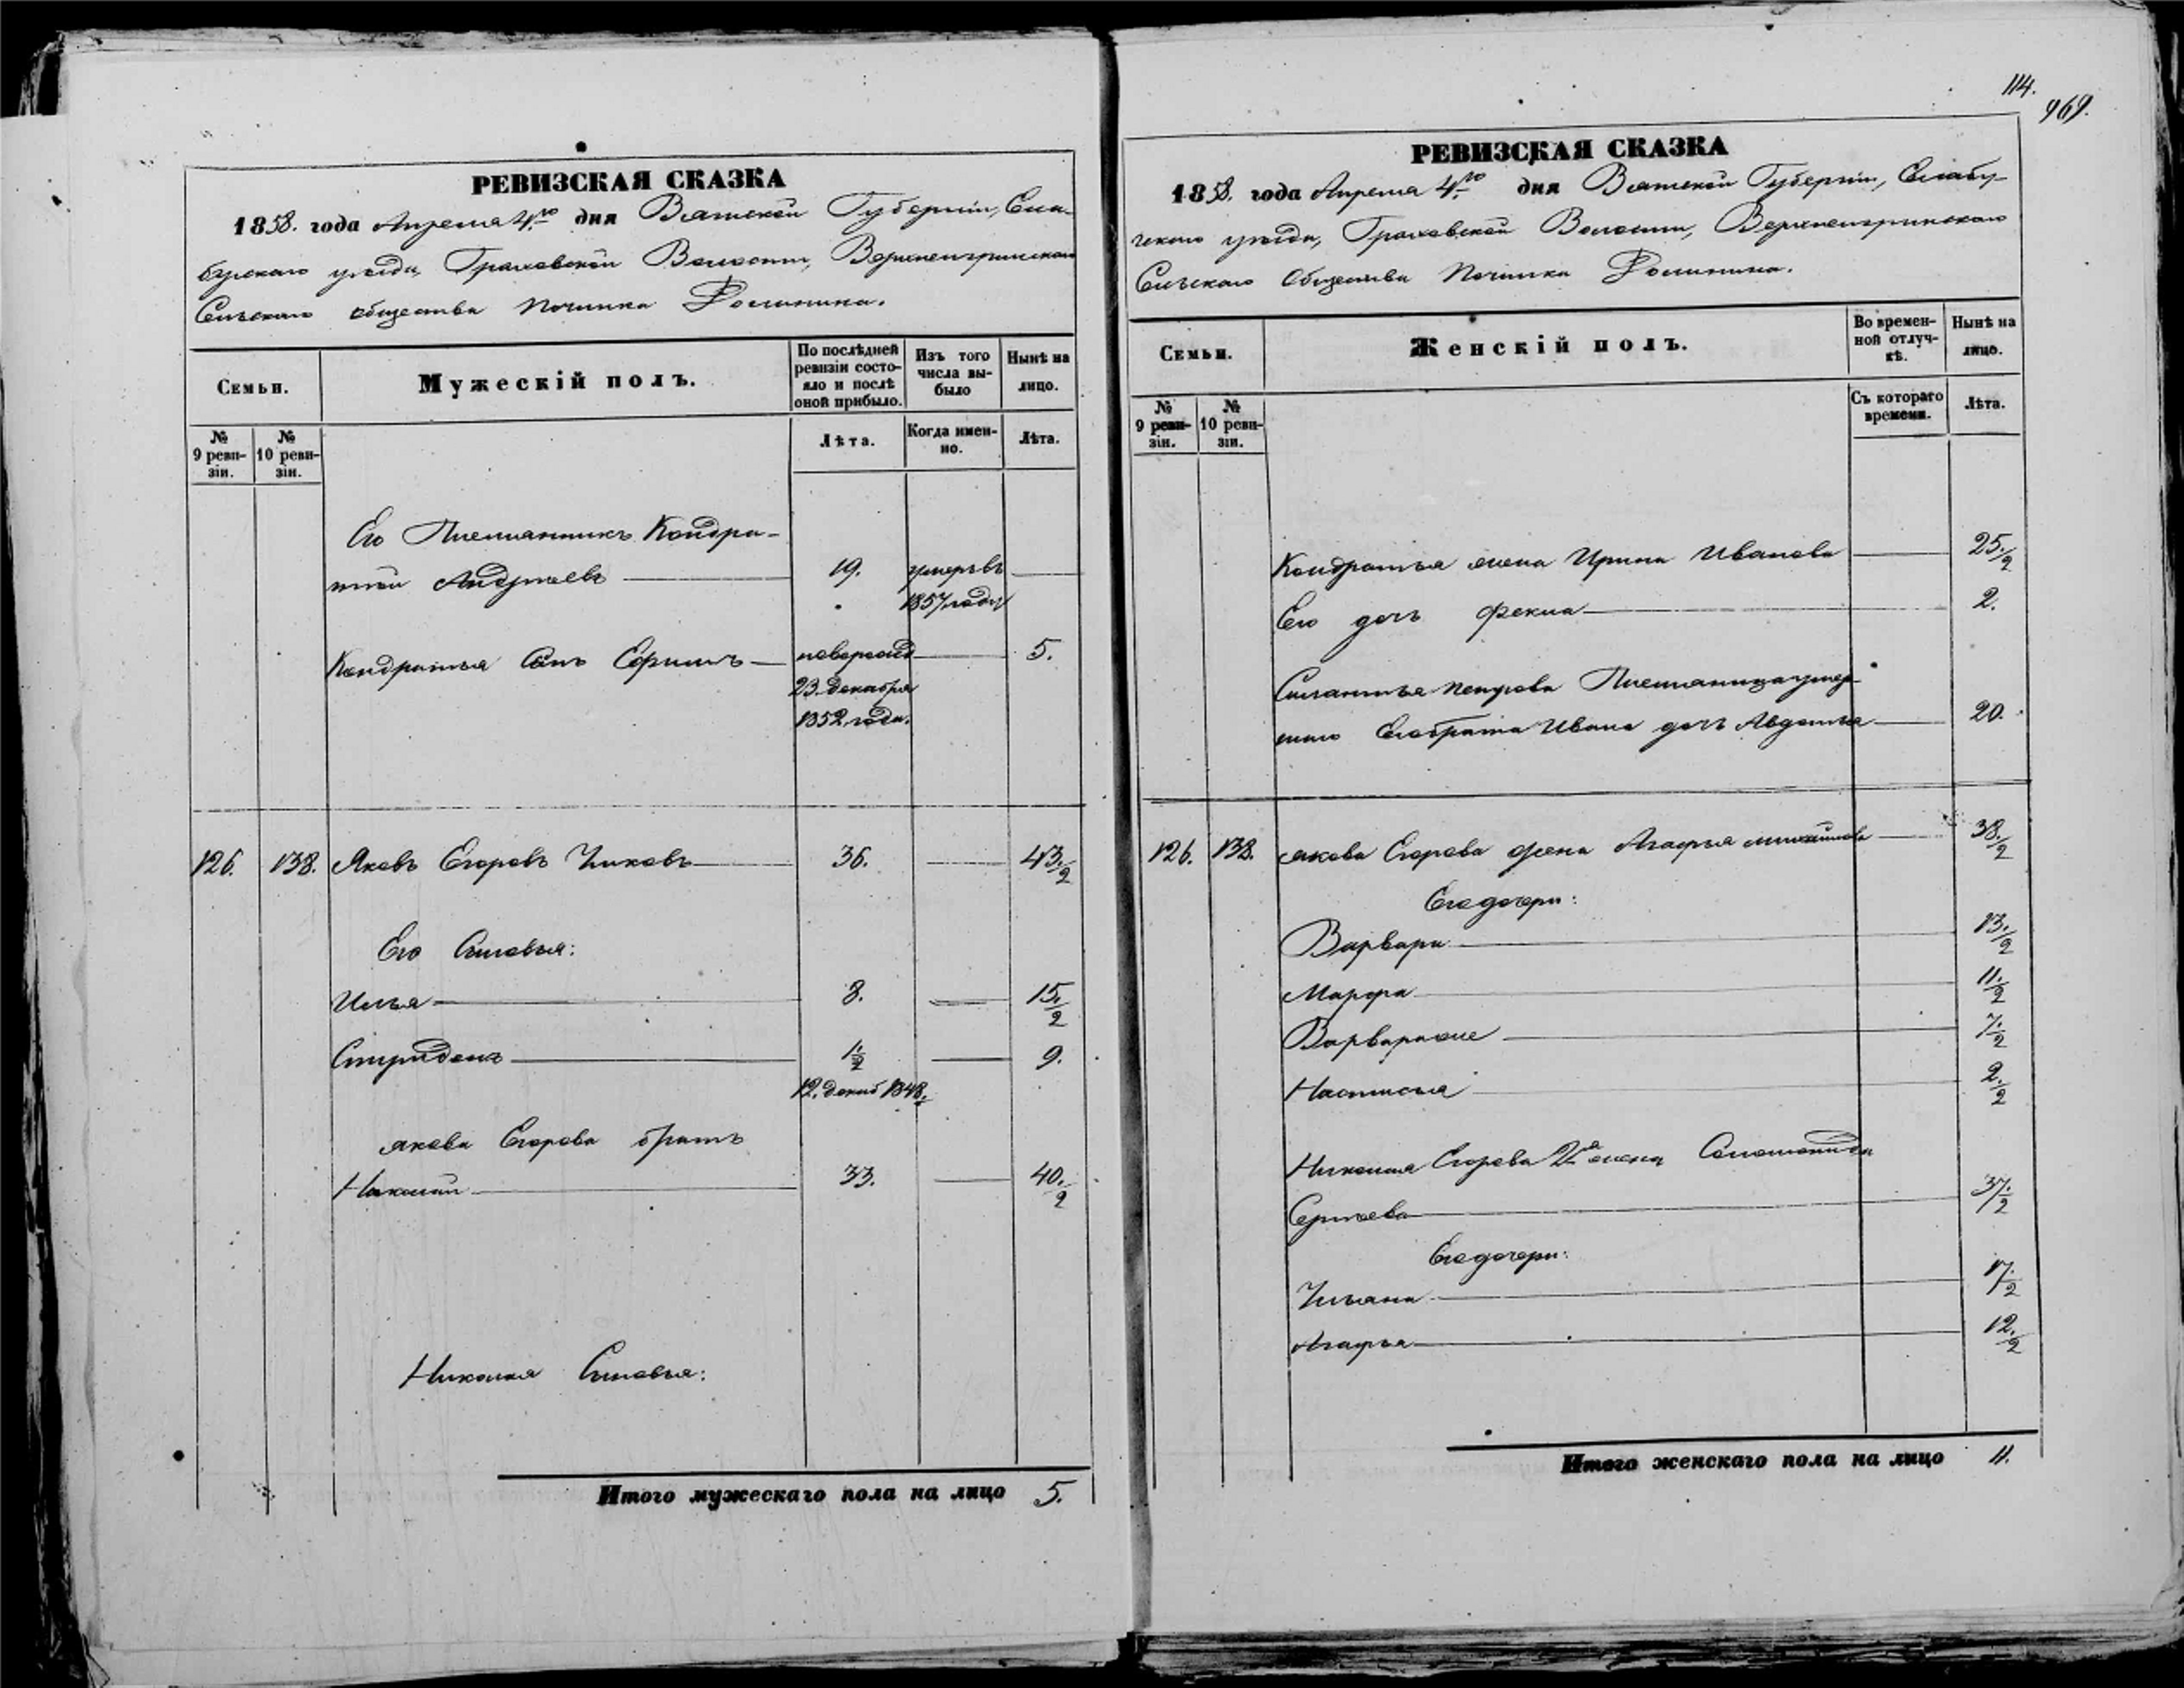 РЕВИЗСКАЯ СКАЗКА
1858. года Апреля 4го дня Вятской Губерніи, Ела-
бугскаго уезда, Граховской Волости, Верхнеигринскаго
Сельскаго общества Починка
Семьи.
Мужескій полъ.
По послѣдней ревизіи состо-яло и послѣ оной прибыло.
Изъ того числа вы-было
Нынѣ на лицо.
№ 9 реви-зіи.
№ 10 реви-зіи.
Лѣта.
Когда имен-но.
Лѣта.
Его Племянникъ Кондра-
тій Андреевъ 19. умеръ въ
1857 году
Кондратья Сынъ Ефимъ новорожд 5.
23. декабря
1852. года.
126. 138. Яковъ Егоровъ Чиковъ 36. 43. 1/2
Его Сыновья:
Илья 8. 15. 1/2
Спиридонъ 1/2 9.
12. декаб 1848.
Якова Егорова братъ
Николай 33. 40. 1/2
Николая Сыновья:
Итого мужескаго пола на лицо 5.
114.
969.
РЕВИЗСКАЯ СКАЗКА
1858. года Апреля 4го дня Вятской Губерніи, Елабу-
гскаго уезда, Граховской Волости, Верхнеигринскаго
Сельскаго Общества Починка
Семьи.
Женскій полъ.
Во времен-ной отлуч-кѣ.
Нынѣ на лицо.
№ 9 реви-зіи.
№ 10 реви-зіи.
Съ котораго времени.
Лѣта.
Кондратья жена Ирина Иванова 25. 1/2
Его дочь Фекла 2.
Силантья Петрова Племянница умер-
шаго Его брата Ивана дочь Авдотья 20.
126. 138. Якова Егорова жена Агафья Михайлова 38. 1/2
Его дочери:
Варвара 13. 1/2
Марфа 11. 1/2
Варвара же 7. 1/2
Настасья 2. 1/2
Николая Егорова 2я жена Соломонида
Сергеева 37. 1/2
Его дочери:
Ульяна 17. 1/2
Агафья 12. 1/2
Итого женскаго пола на лицо 11.